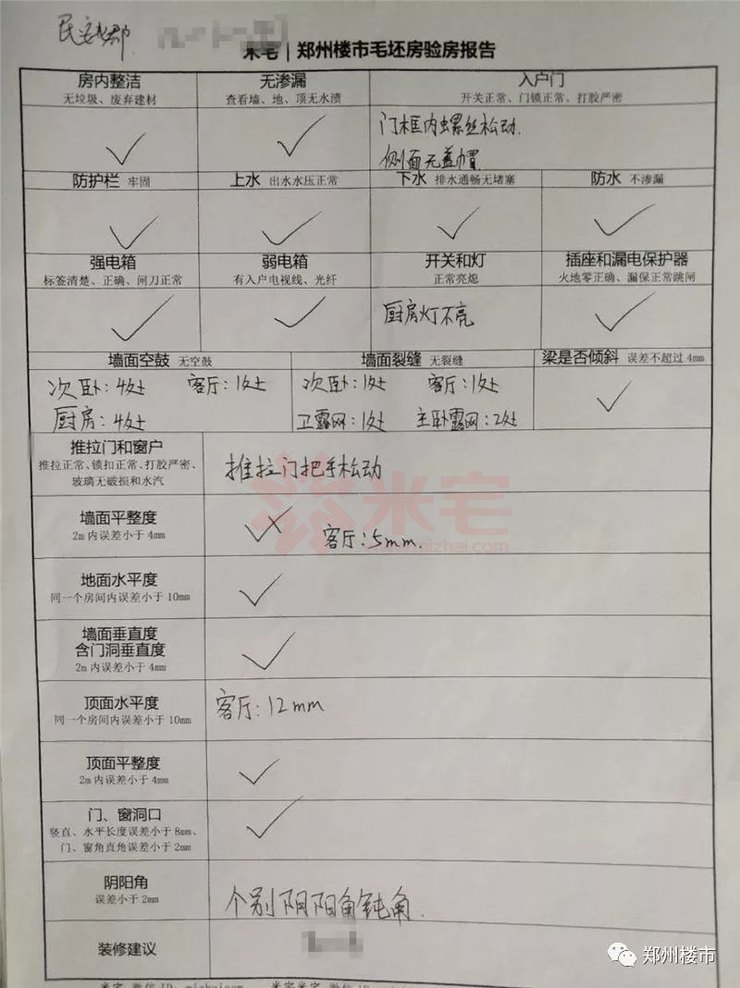 民安北郡
米宅|郑州楼市毛坯房验房报告
房内整洁
无垃圾、废弃建材
无渗漏
查看墙、地、顶无水渍
入户门
开关正常、门锁正常、打胶严密
门框内螺丝松动.
侧面无盖帽
防护栏 牢固
上水 出水水压正常
下水 排水通畅无堵塞
防水 不渗漏
强电箱
标签清楚、正确、闸刀正常
弱电箱
有入户电视线、光纤
开关和灯
正常亮熄
插座和漏电保护器
火地零正确、漏保正常跳闸
厨房灯不亮
墙面空鼓 无空鼓
墙面裂缝 无裂缝
梁是否倾斜 误差不超过4mm
次卧:4处 客厅:1处
厨房:4处
次卧:1处 客厅:1处
卫露网:1处 主卧露网:2处
推拉门和窗户
推拉正常、锁扣正常、打胶严密、
玻璃无破损和水汽
推拉门把手松动
米宅
mizhai.com
墙面平整度
2m内误差小于4mm
客厅:5mm.
地面水平度
同一个房间内误差小于10mm
墙面垂直度
含门洞垂直度
2m内误差小于4mm
顶面水平度
同一个房间内误差小于10mm
客厅:12mm
顶面平整度
2m内误差小于4mm
门、窗洞口
竖直、水平长度误差小于8mm、
门、窗角直角误差小于2mm
阴阳角
误差小于2mm
个别阴阳角钝角.
装修建议
郑州楼市